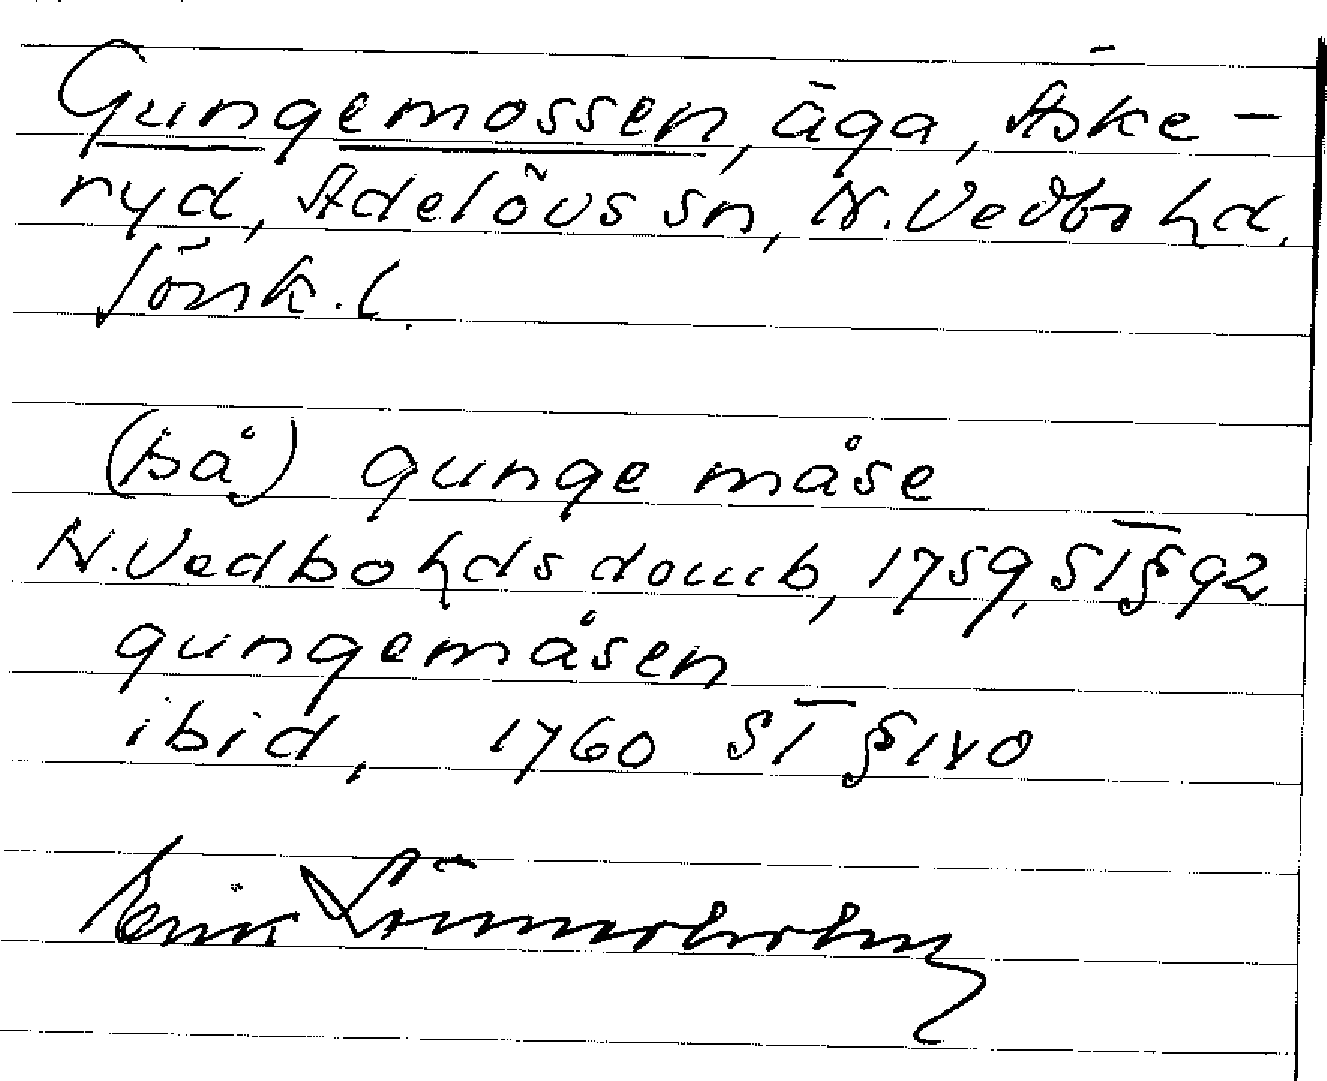 Gungemossen, äga, Äske-
ryd, Adelövs sn, N. Vedbo hd.
Jönk. l.
(på) gunge måse
N. Vedbo hds domb, 1759, ST § 92
gungemåsen
ibid, 1760 ST § 140
Erik